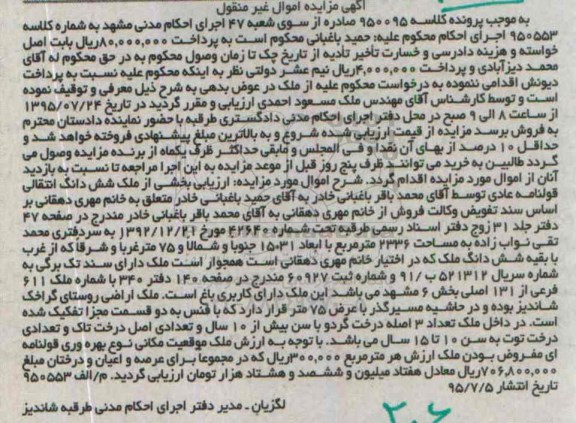 آگهی مزایده اموال غیر منقول
به موجب پرونده کلاسه ۹۵۰۰۹۵ صادره از سوی شعبه ۴۷ اجرای احکام مدنی مشهد به شماره کلاسه
۹۵۰۵۵۳ اجرای احکام محکوم علیه: حمید باغبانی محکوم است به پرداخت ۸۰,۰۰۰,۰۰۰ریال بابت اصل
خواسته و هزینه دادرسی و خسارت تأخیر تأدیه از تاریخ چک تا زمان وصول محکوم به در حق محکوم له آقای
محمد دیزآبادی و پرداخت ۴,۰۰۰,۰۰۰ریال نیم عشر دولتی نظر به اینکه محکوم علیه نسبت به پرداخت
دیونش اقدامی ننموده به درخواست محکوم علیه از ملک در عوض بدهی به شرح ذیل معرفی و توقیف نموده
است و توسط کارشناس آقای مهندس ملک مسعود احمدی ارزیابی و مقرر گردید در تاریخ ۱۳۹۵/۰۷/۲۴
از ساعت ۸ الی ۹ صبح در محل دفتر اجرای احکام مدنی دادگستری طرقبه با حضور نماینده دادستان محترم
به فروش برسد مزایده از قیمت ارزیابی شده شروع و به بالاترین مبلغ پیشنهادی فروخته خواهد شد و
حداقل ۱۰ درصد از بهای آن نقدا و فی المجلس و مابقی حداکثر ظرف یکماه از برنده مزایده وصول می
گردد طالبین به خرید می توانند ظرف پنج روز قبل از موعد مزایده به این اجرا مراجعه تا نسبت به بازدید
آنان از اموال مورد مزایده اقدام گردد. شرح اموال مورد مزایده: ارزیابی بخشی از ملک شش دانگ انتقالی
قولنامه عادی توسط آقای محمد باقر باغبانی خادر به آقای حمید باغبانی خادر متعلق به خانم مهری دهقانی بر
اساس سند تفویض وکالت فروش از خانم مهری دهقانی به آقای محمد باقر باغبانی خادر مندرج در صفحه ۴۷
دفتر جلد ۳۱ زوج دفتر اسناد رسمی طرقبه تحت شماره ۴۲۶۴۰ مورخ ۱۳۹۲/۱۲/۲۱ به سردفتری محمد
تقی نواب زاده به مساحت ۲۳۳۶ مترمربع با ابعاد ۱۵۰۳۱ جنوبا و شمالا و ۷۵ مترغربا و شرقا که از غرب
با بقیه شش دانگ ملک که در اختیار خانم مهری دهقانی است همجوار است ملک دارای سند تک برگی به
شماره سریال ۵۲۱۳۱۲ ب/ ۹۱ و شماره ثبت ۶۰۹۲۷ مندرج در صفحه ۱۴۰ دفتر ۳۴۰ با شماره ملک ۶۱۱
فرعی از ۱۳۱ اصلی بخش ۶ مشهد می باشد این ملک دارای کاربری باغ است. ملک اراضی روستای گراخک
شاندیز بوده و در حاشیه مسیرگذر با عرض ۷۵ متر قرار دارد که با فنس به دو قسمت مجزا تفکیک شده
است. در داخل ملک تعداد ۳ اصله درخت گردو با سن بیش از ۱۰ سال و تعدادی اصل درخت تاک و تعدادی
درخت توت به سن ۱۰ تا ۱۵ سال می باشد. با توجه به ارزش ملک موقعیت مکانی نوع بهره وری قولنامه
ای مفروض بودن ملک ارزش هر مترمربع ۳۰۰,۰۰۰ریال که در مجموعا برای عرصه و اعیان و درختان مبلغ
۷۰۶,۸۰۰,۰۰۰ریال معادل هفتاد میلیون و ششصد و هشتاد هزار تومان ارزیابی گردید. م/الف ۹۵۰۵۵۳
تاریخ انتشار ۹۵/۷/۵
لگزیان - مدیر دفتر اجرای احکام مدنی طرقبه شاندیز
۲۰۶